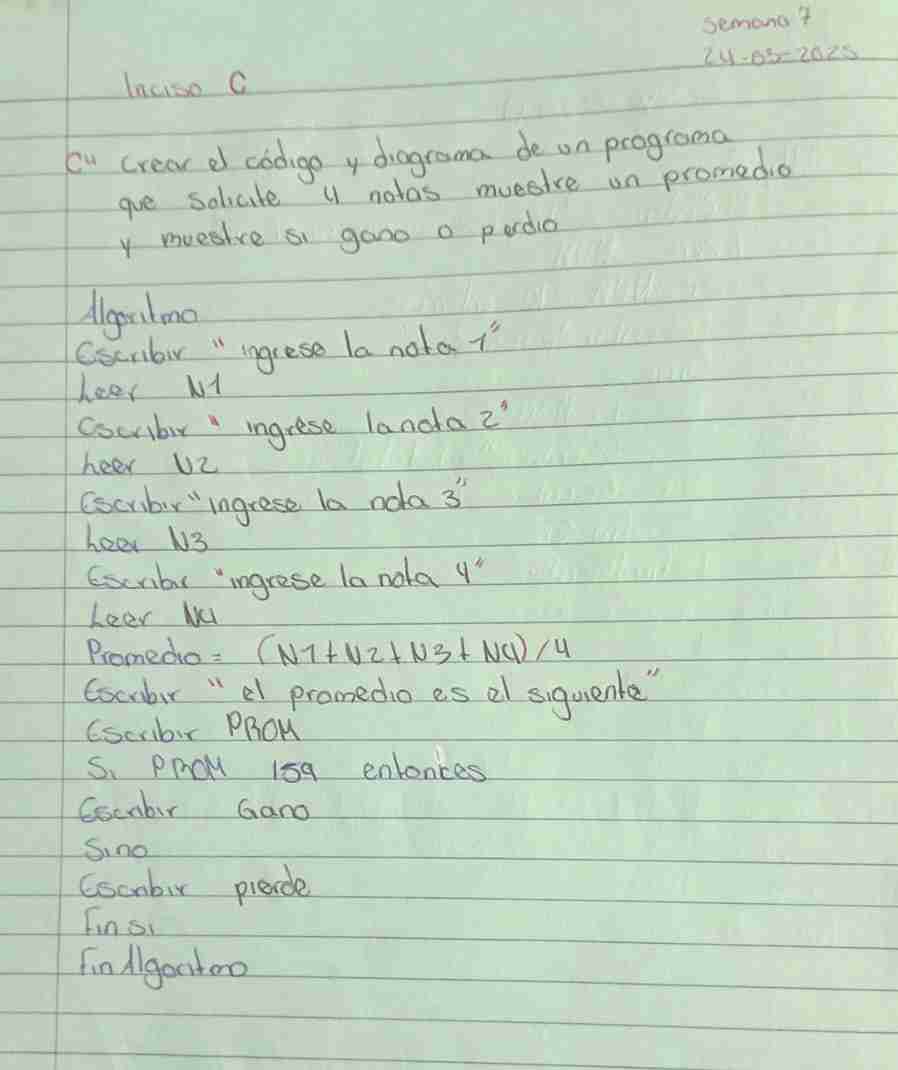 Semana 7
24-03-2025
Inciso C
C" Crear el código y diagrama de un programa
que solicite 4 notas muestre un promedio
y muestre si gano o perdio
Algoritmo
Escribir "ingrese la nota 1"
Leer N1
Escribir "ingrese la nota 2"
Leer N2
Escribir "ingrese la nota 3"
Leer N3
Escribir "ingrese la nota 4"
Leer N4
Promedio = (N1+N2+N3+N4)/4
Escribir "el promedio es el siguiente"
Escribir PROM
Si PROM 159 entonces
Escribir Gano
Sino
Escribir pierde
Fin si
Fin Algoritmo